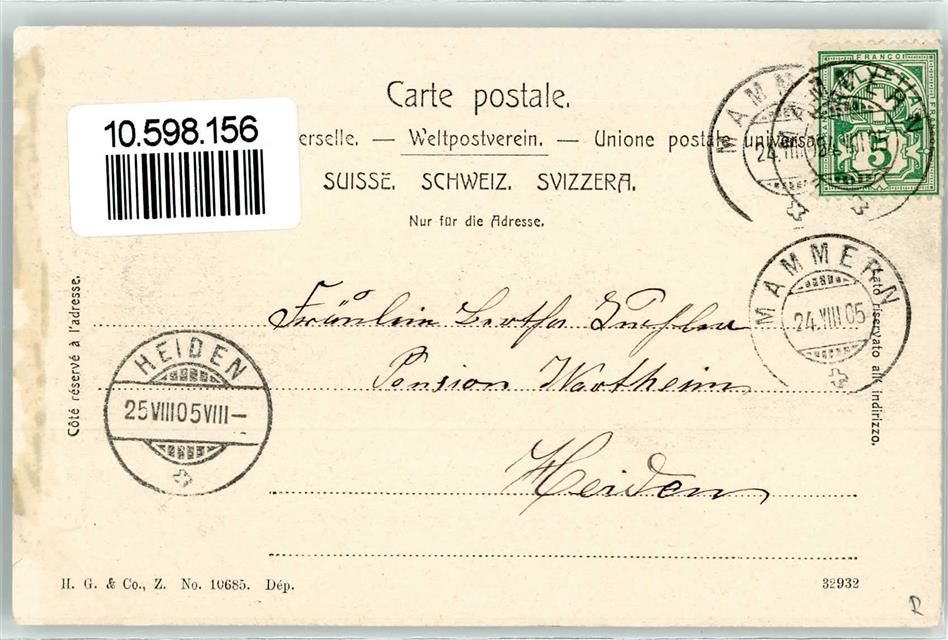 Carte postale.
10.598.156
erselle. — Weltpostverein. — Unione postale universale
SUISSE. SCHWEIZ. SVIZZERA.
Nur für die Adresse.
FRANCO
HELVETIA
5
MAMMERN
24.VIII.05
MAMMERN
24.VIII.05
Côté réservé à l'adresse.
Lato riservato all' indirizzo.
Fräulein Bertha
Pension Wartheim
HEIDEN
25 VIII 05 VIII —
Heiden
H. G. & Co., Z. No. 10685. Dép.
32932
R